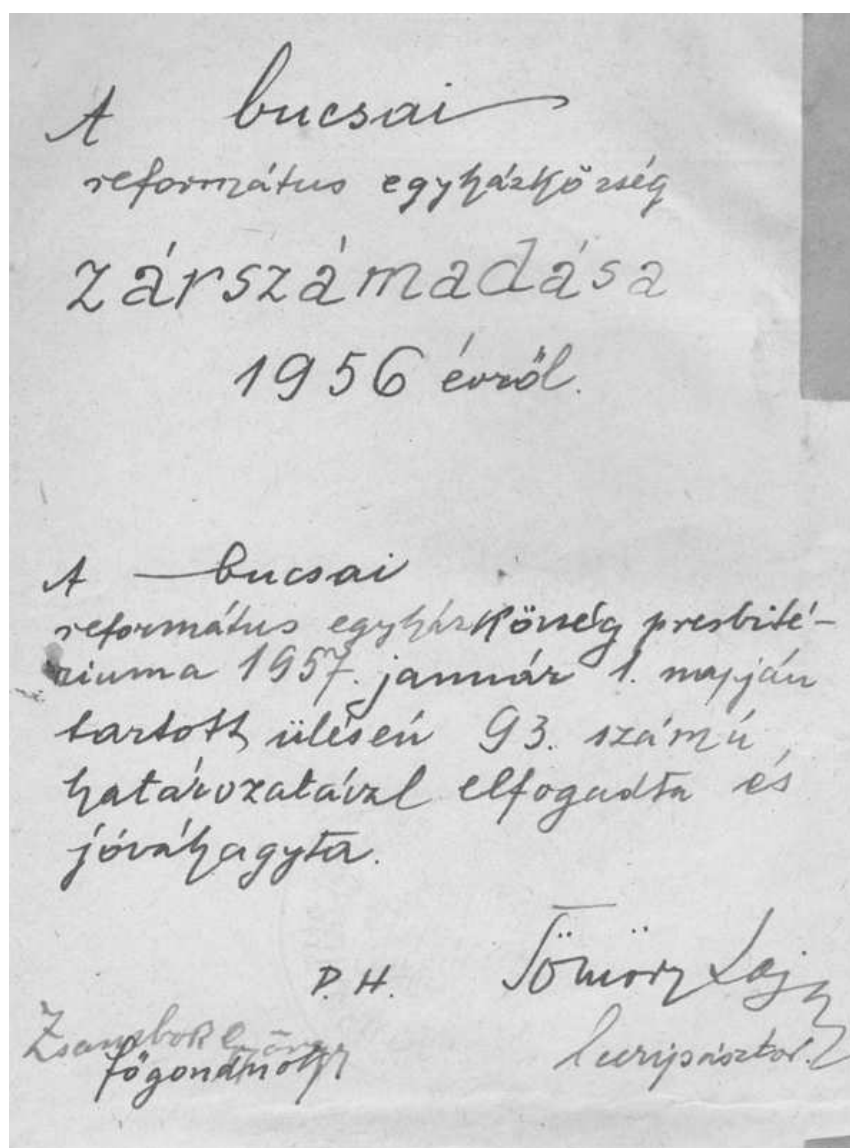 A bucsai
református egyházközség
zárszámadása
1956 évről.
A bucsai
református egyházközség presbité-
riuma 1957. január 1. napján
tartott ülésén 93. számú
határozatával elfogadta és
jóváhagyta.
P.H. Tömöry Lajos
főgondnok lelkipásztor.